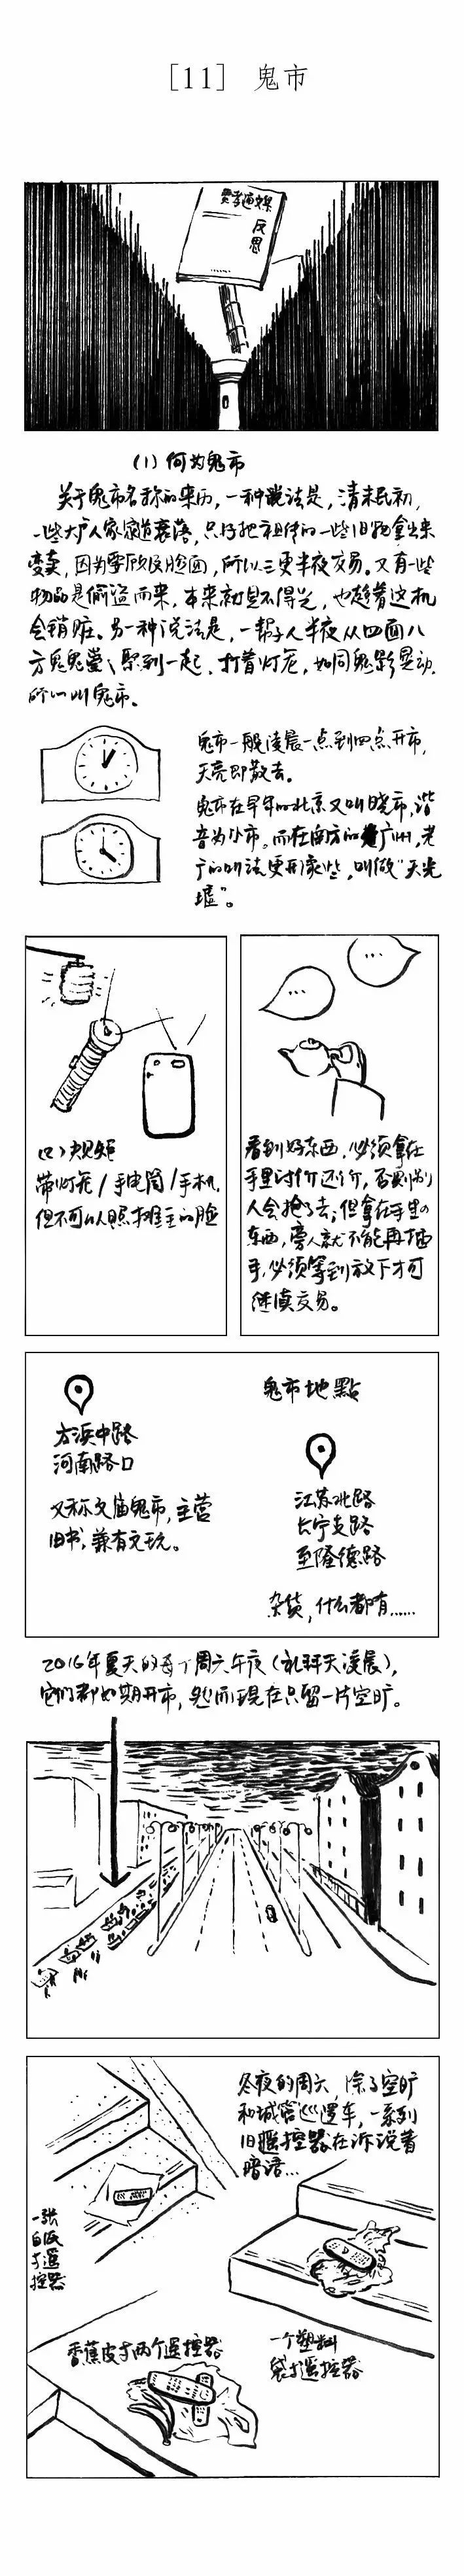 [11] 鬼市
反思
(1) 何为鬼市
关于鬼市名称的来历，一种说法是，清末民初，
一些大户人家家道衰落，只好把祖传的一些旧物拿出来
变卖，因为要顾及脸面，所以三更半夜交易。又有一些
物品是偷盗而来，本来就见不得光，也趁着这机
会销赃。另一种说法是，一帮子人半夜从四面八
方鬼鬼祟祟聚到一起，打着灯笼，如同鬼影晃动，
所以叫鬼市。
鬼市一般凌晨一点到四点开市，
天亮即散去。
鬼市在早年的北京又叫晓市，谐
音为小市。而在南方的广州，老
广的叫法更形象些，叫做“天光
墟”。
(2) 规矩
带灯笼/手电筒/手机，
但不可以照摊主的脸
看到好东西，必须拿在
手里讨价还价，否则别
人会抢了去；但拿在手里的
东西，旁人就不能再插
手，必须等到放下才可
继续交易。
鬼市地點
方浜中路
河南路口
又称文庙鬼市，主营
旧书，兼有文玩。
江苏北路
长宁支路
至隆德路
杂货，什么都有……
2016年夏天的每个周六午夜（礼拜天凌晨），
它们都如期开市，然而现在只留一片空旷。
冬夜的周六，除了空旷
和城管巡逻车，一系列
旧遥控器在诉说着
暗语…
一张
白纸
+遥
控器
一个塑料
袋+遥控器
香蕉皮+两个遥控器